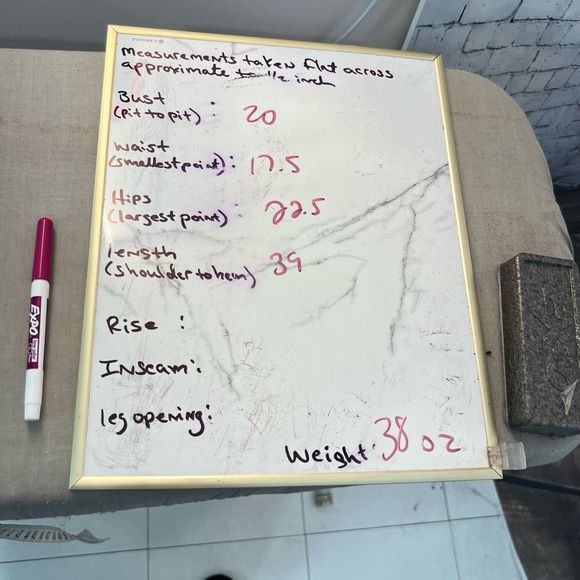 measurements taken flat across
approximate to 1/2 inch
Bust
(pit to pit) : 20
waist
(smallest point) : 17.5
Hips
(largest point) : 22.5
length
(shoulder to hem) 39
Rise :
Inseam :
leg opening :
Weight : 38 oz
EXPO